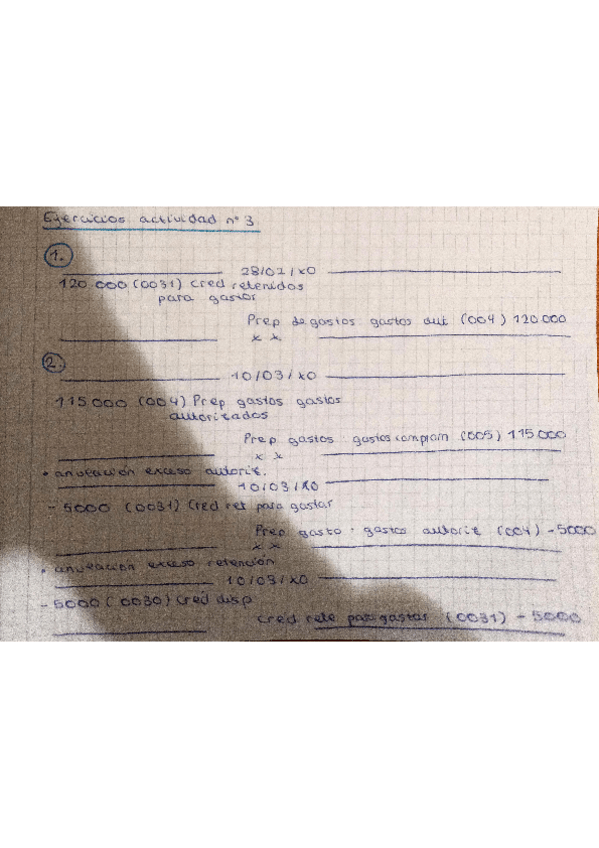 Ejercicios actividad nº 3
1.
28/02/X0
120 000 (0031) Cred retenidos
para gastar
Prep de gastos gastos aut (004) 120.000
x x
2.
10/03/X0
115000 (004) Prep gastos gastos
autorizados
Prep gastos gastos comprom (005) 115000
x x
• anulación exceso autoriz.
10/03/X0
- 5000 (0031) Cred ret para gastar
Prep gasto · gastos autoriz (004) - 5000
x x
• anulación exceso retención
10/03/X0
- 5000 (0030) Cred disp
Cred rete par gastar (0031) - 5000